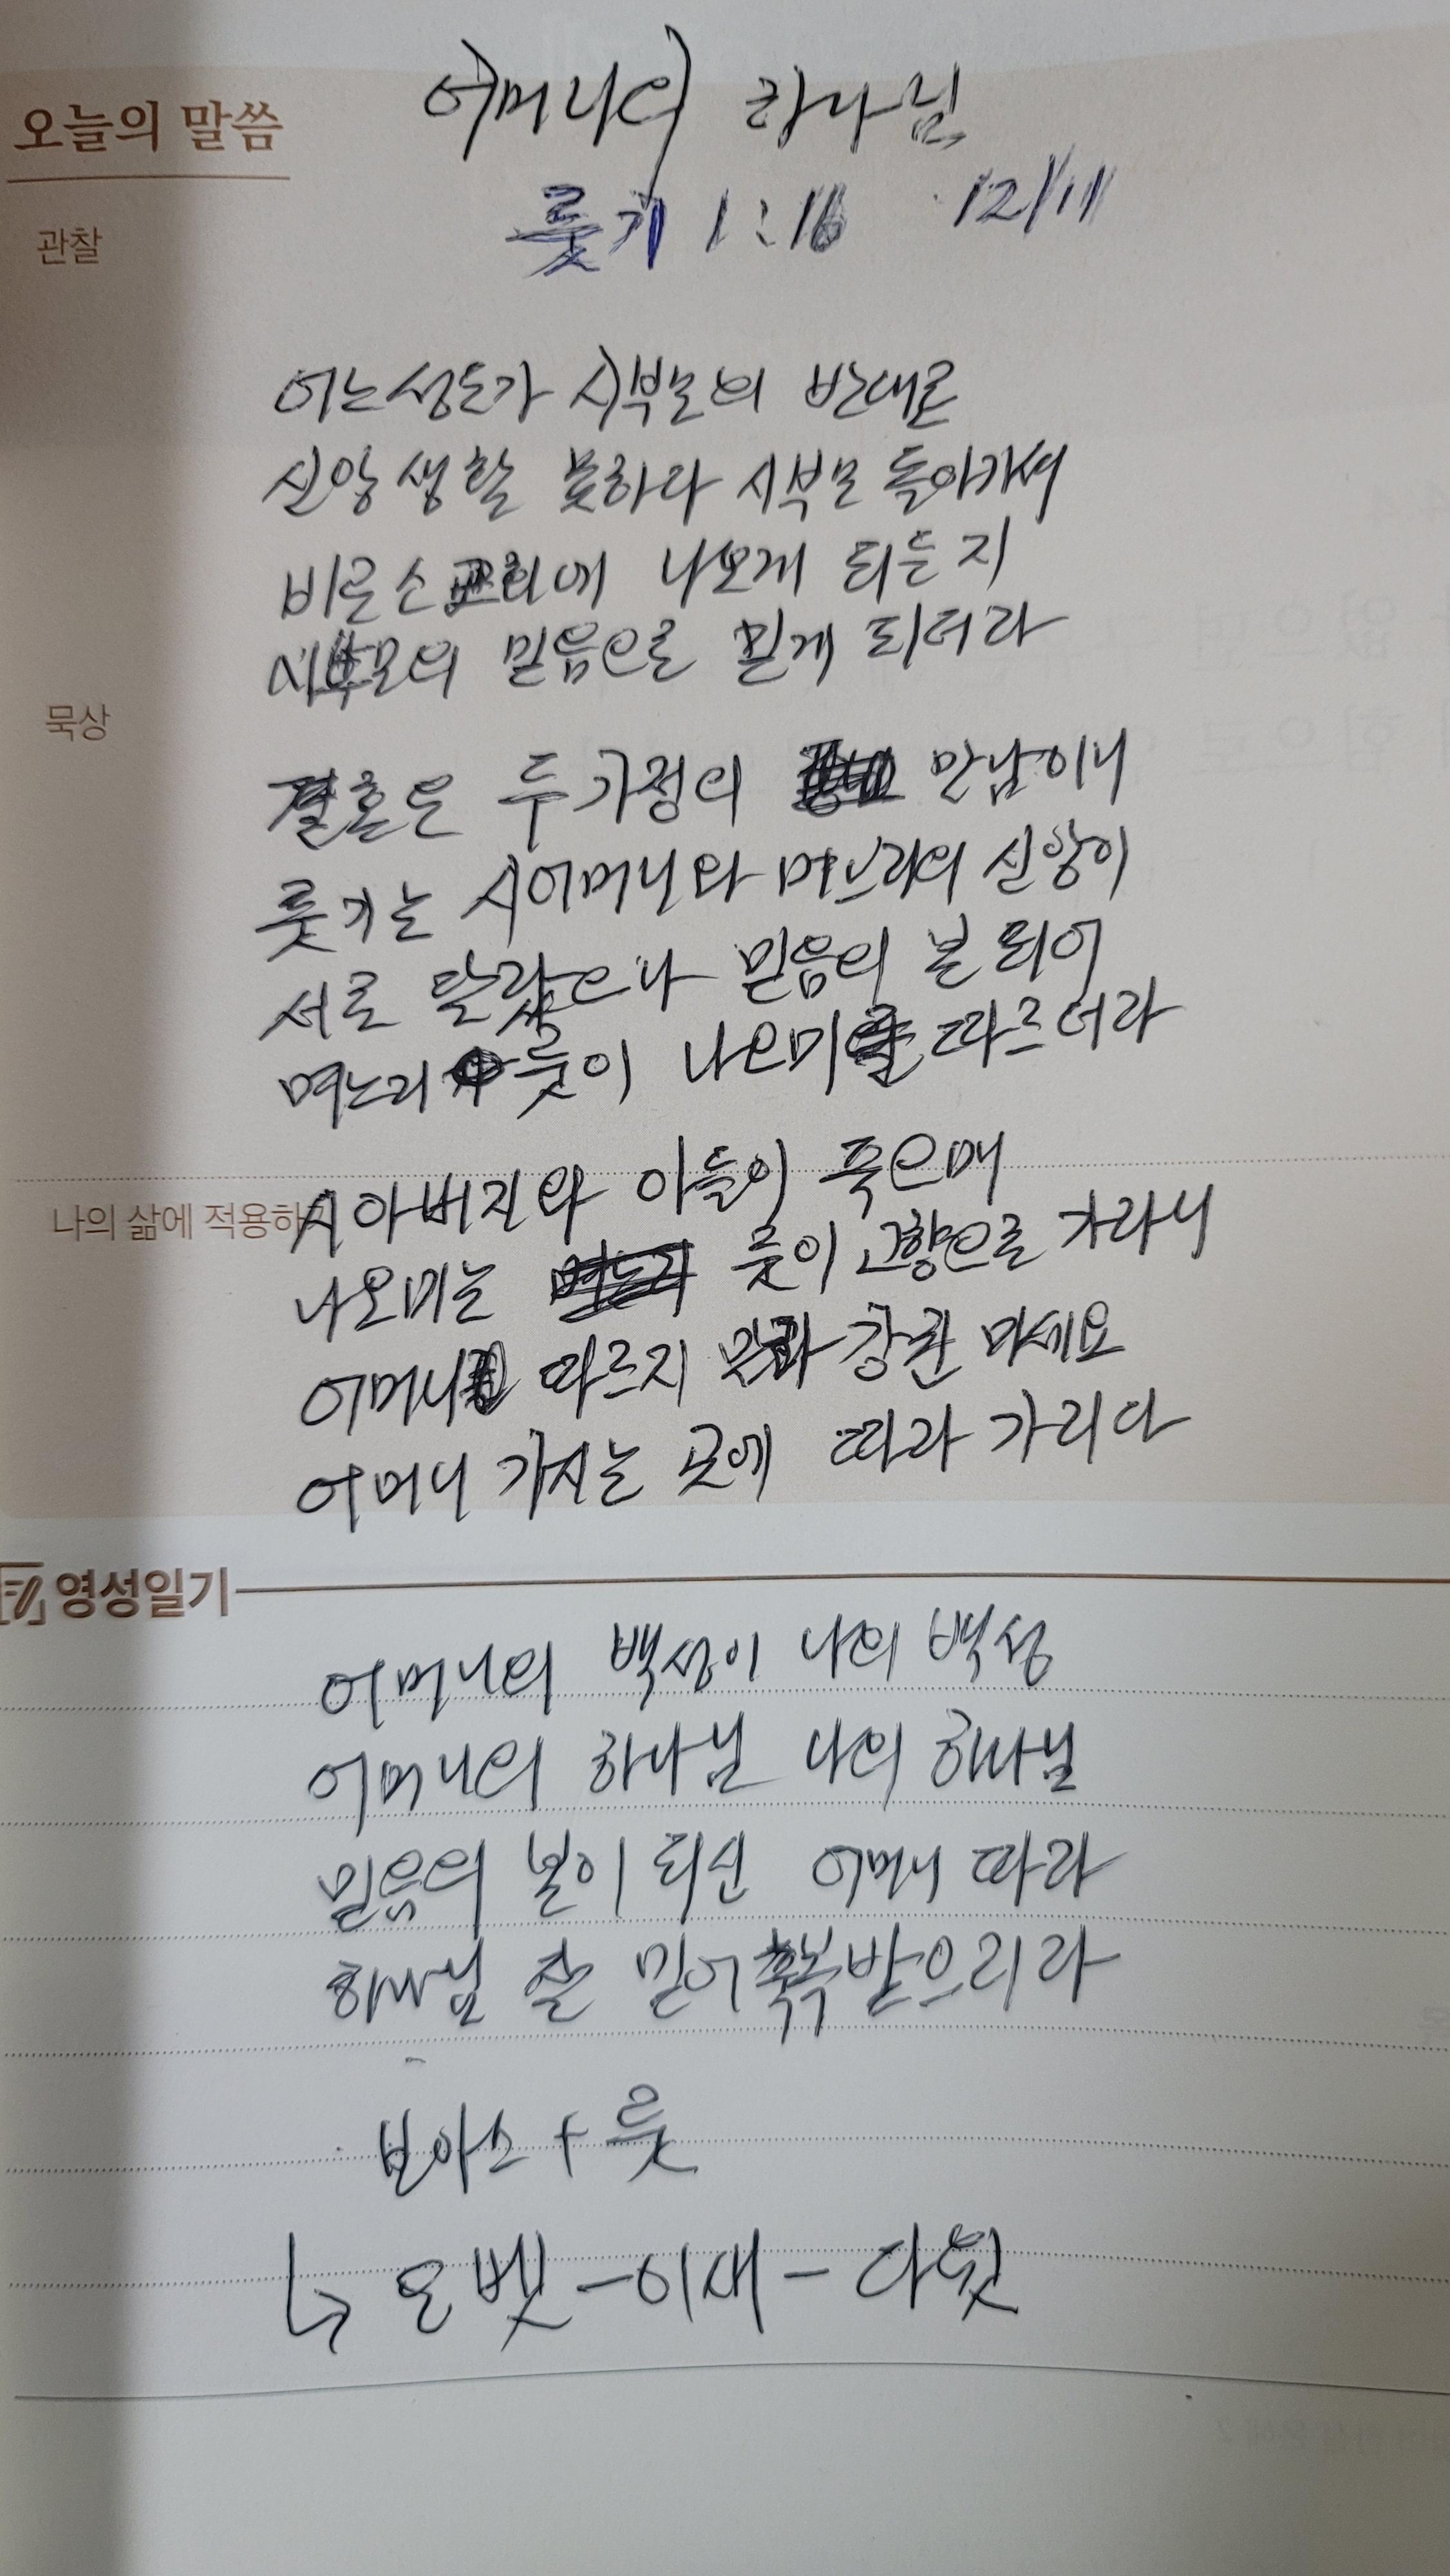 어머니의 하나님
오늘의 말씀
룻기 1:16 12/11
관찰
어느성도가 시부모의 반대로
신앙생활 못하다 시부모 돌아가셔
비로소 교회에 나오게 되는지
시부모의 믿음으로 믿게 되더라
묵상
결혼은 두가정의 만남이니
룻기는 시어머니와 며느리의 신앙이
서로 달랐으나 믿음의 본 되어
며느리 룻이 나오미를 따르더라
나의 삶에 적용하기
시아버지와 아들이 죽으매
나오미는 룻이 고향으로 가라니
어머니 따르지 말라 강권 마세요
어머니 가시는 곳에 따라 가리다
영성일기
어머니의 백성이 나의 백성
어머니의 하나님 나의 하나님
믿음의 본이 되신 어머니 따라
하나님 잘 믿어 축복받으리라
보아스 + 룻
↳ 오벳 - 이새 - 다윗